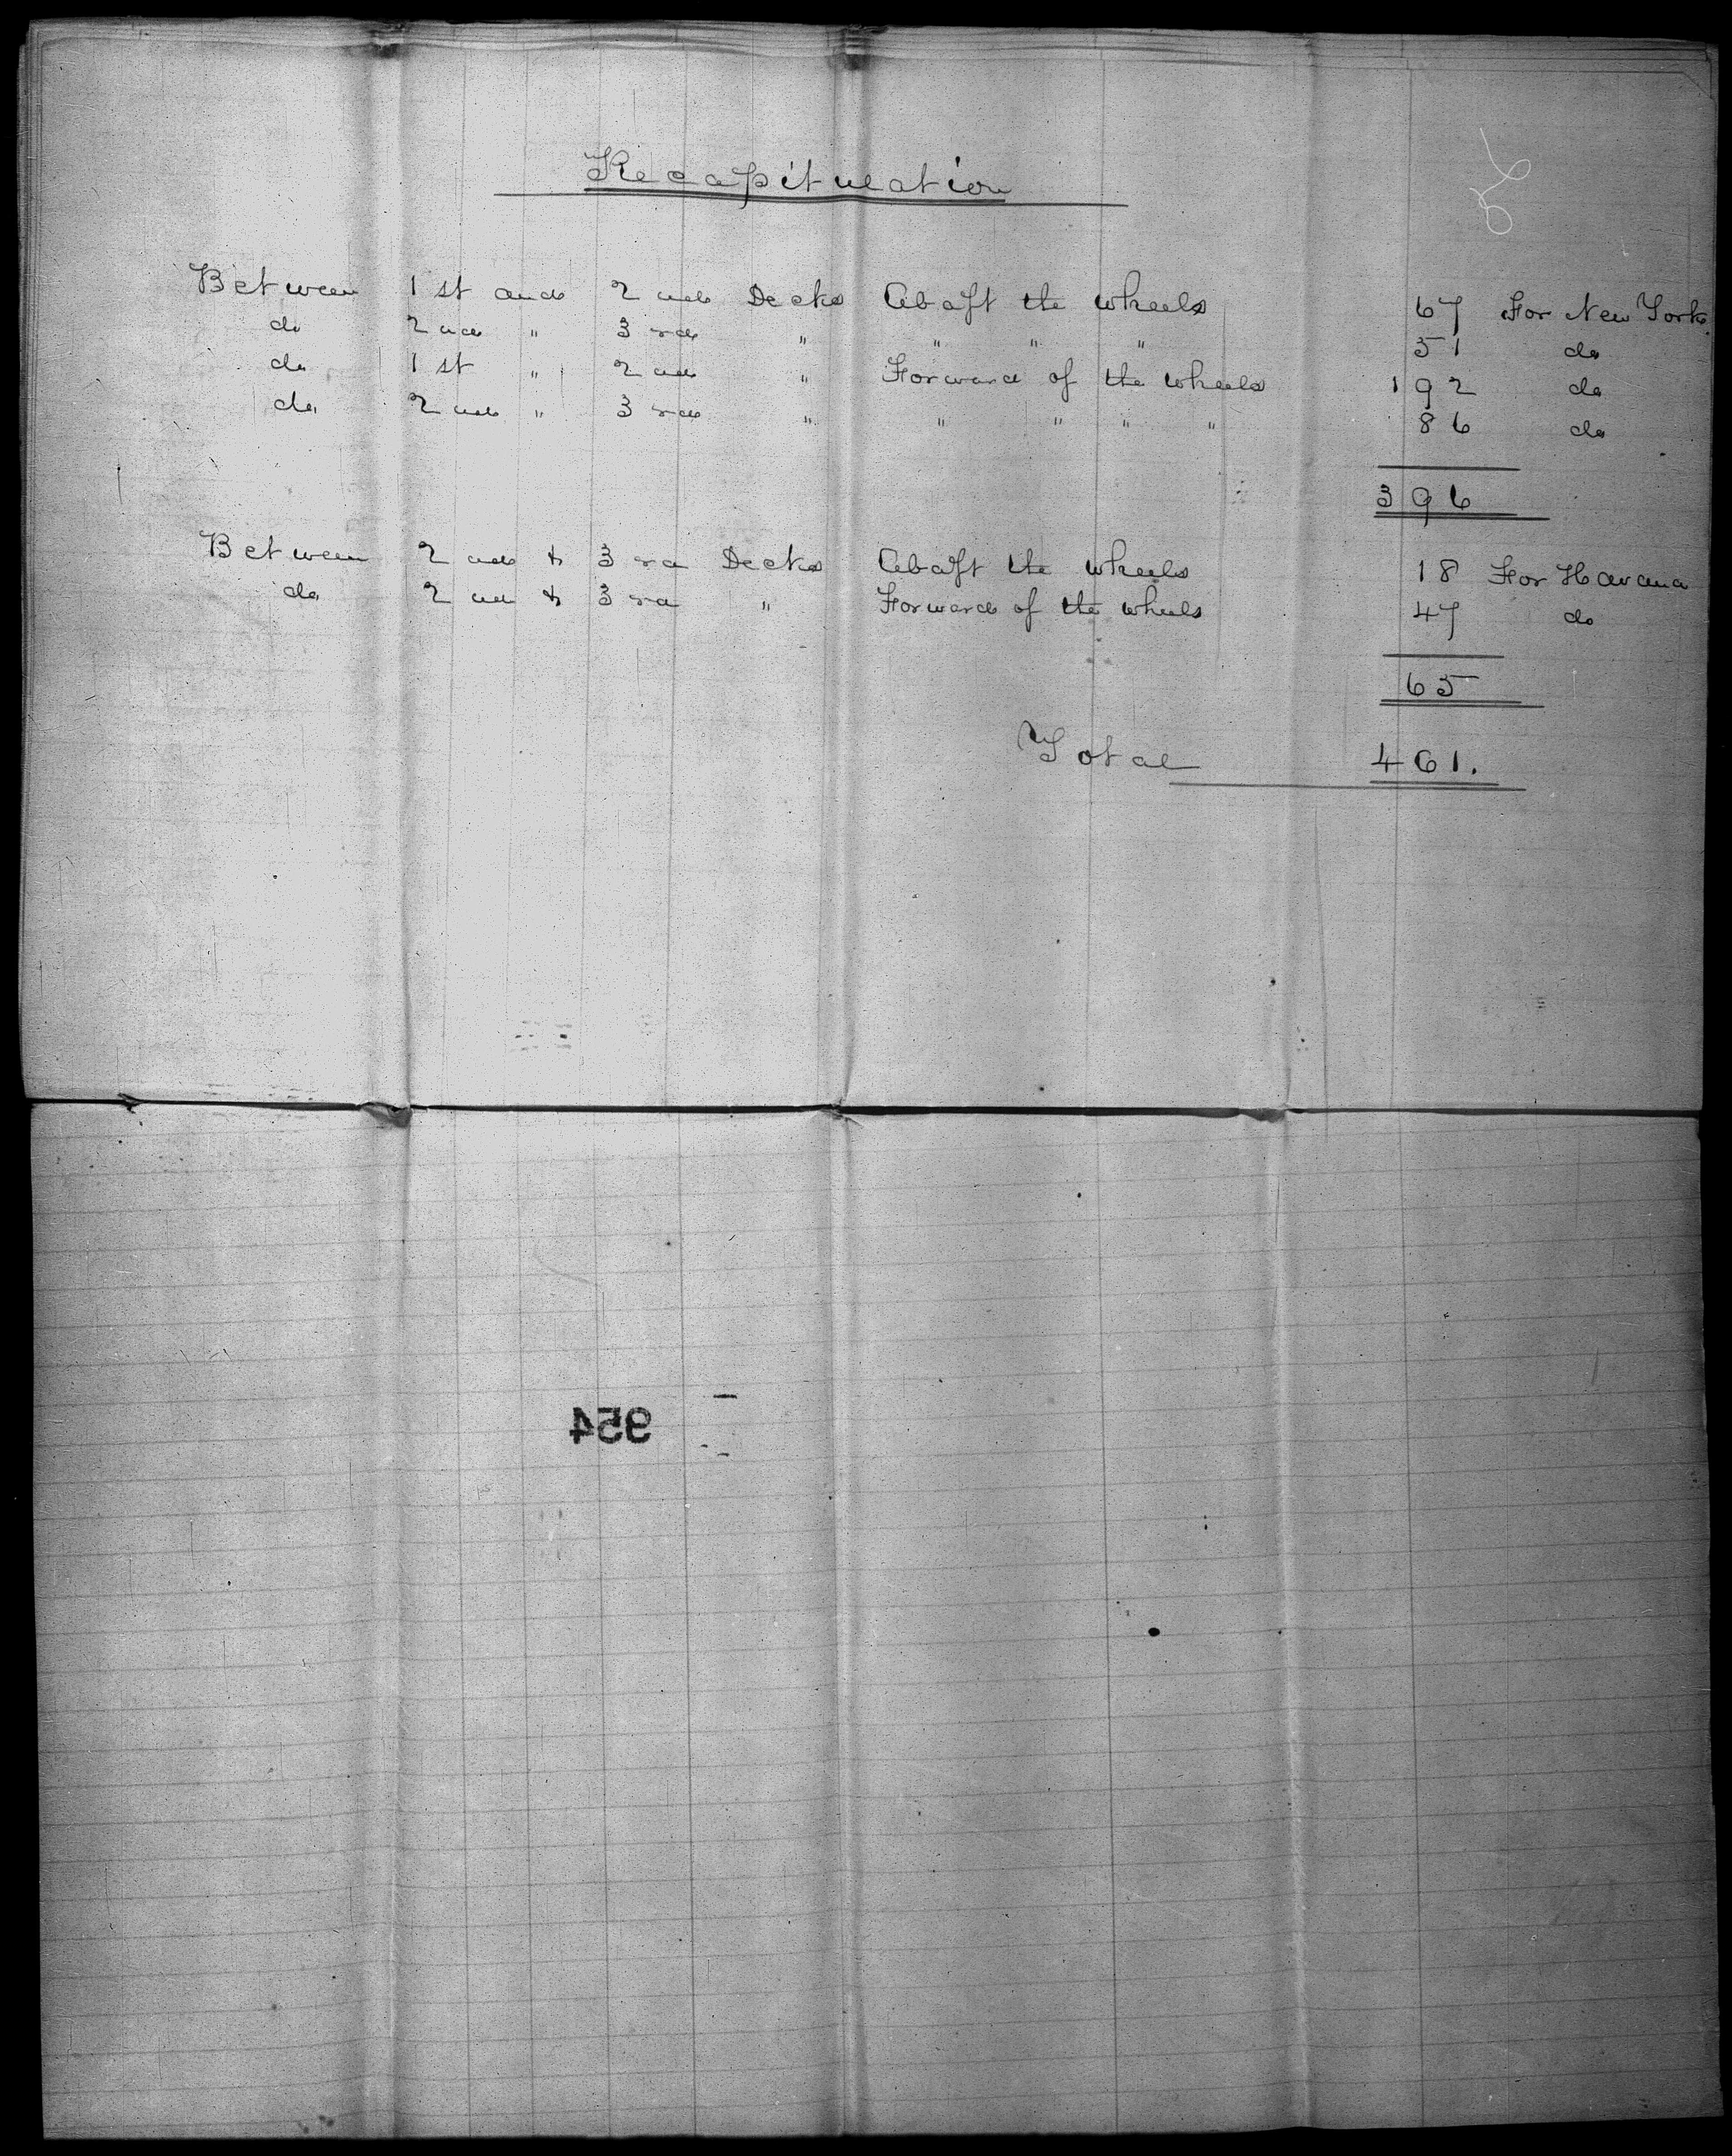 Recapitulation
Between 1st and 2nd Decks Abaft the wheels 67 For New York
do 2nd " 3rd " " " " 51 do
do 1st " 2nd " Forward of the wheels 192 do
do 2nd " 3rd " " " " " 86 do
396
Between 2nd & 3rd Decks Abaft the wheels 18 For Havana
do 2nd & 3rd " Forward of the wheels 47 do
65
Total 461.
954